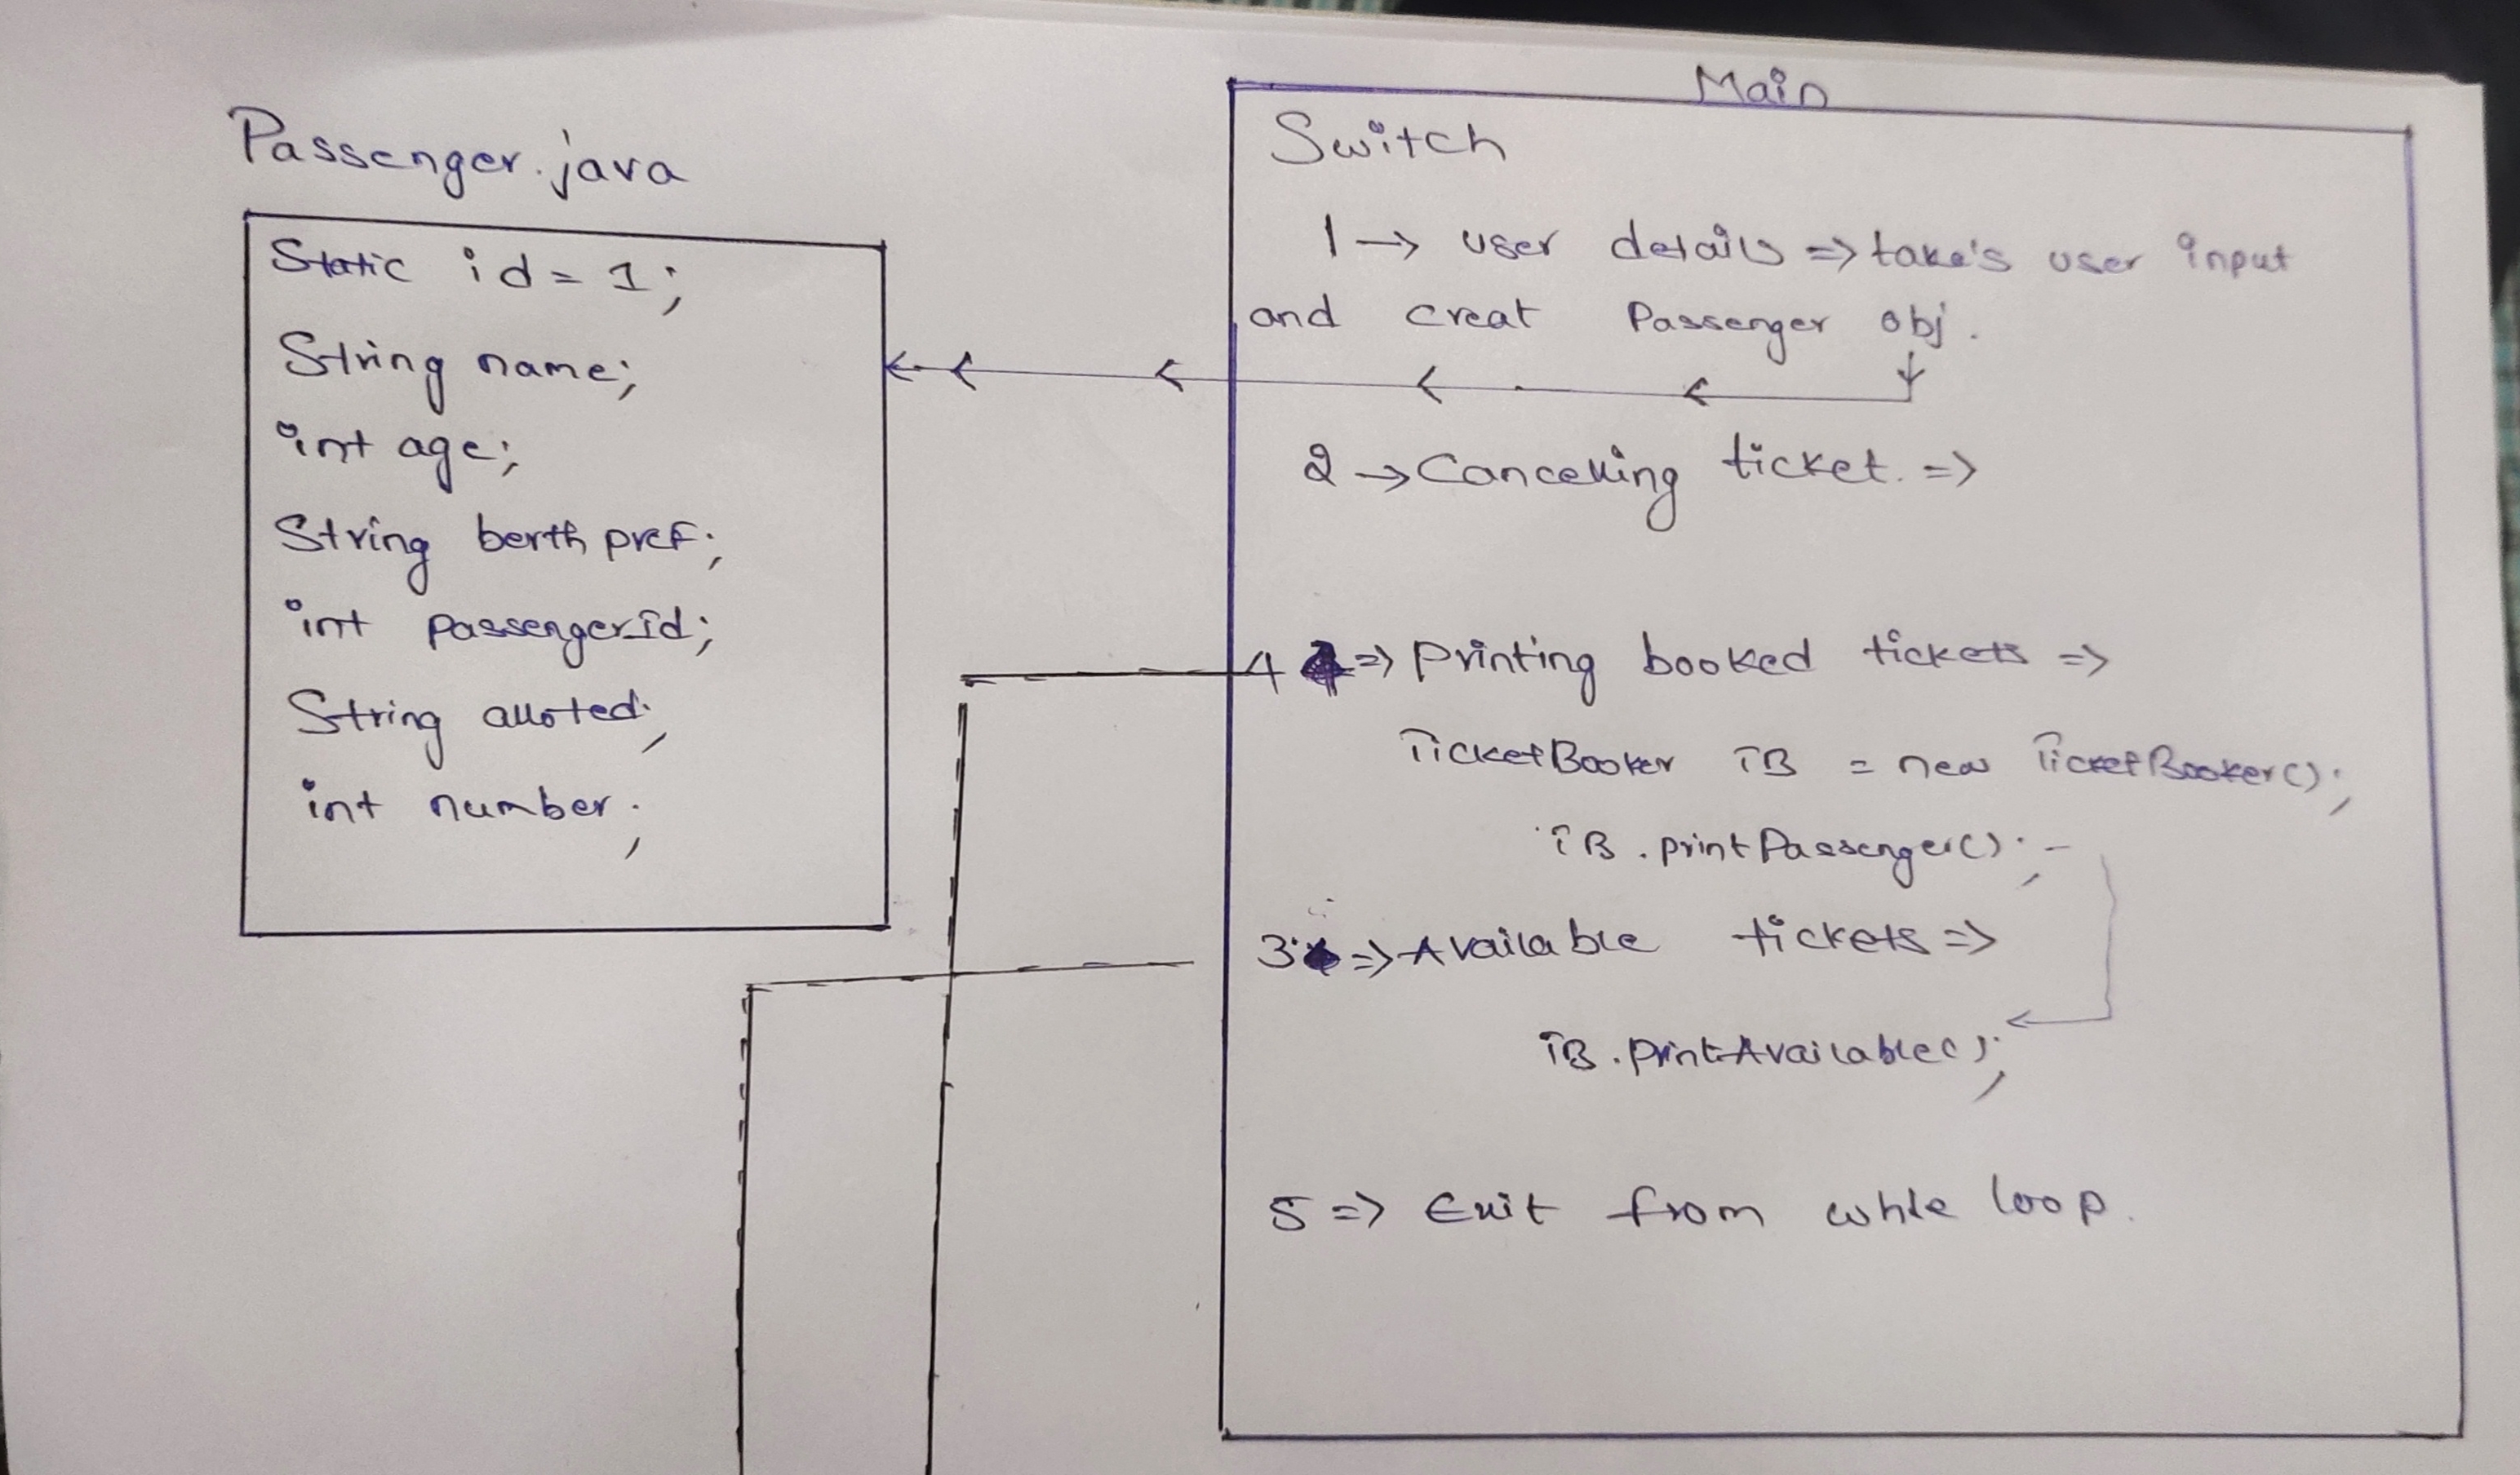 Passenger.java
Static id = 1;
String name;
int age;
String berth pref;
int passengerid;
String alloted;
int number;
Main
Switch
1 → user details => take's user input
and creat Passenger obj.
2 → Cancelling ticket. =>
4 => printing booked tickets =>
TicketBooker TB = new TicketBooker();
TB.printPassenger();
3 => Available tickets =>
TB.printAvailable();
5 => Exit from while loop.